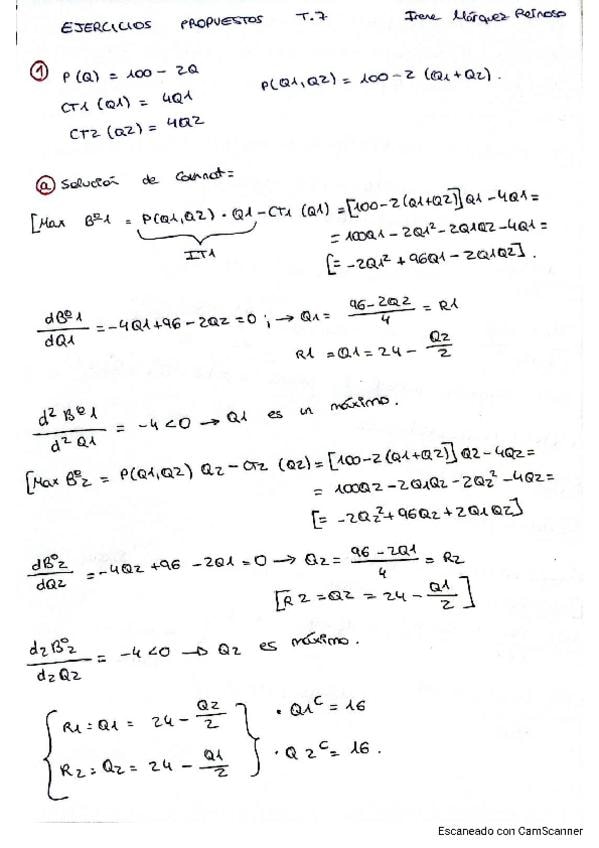 EJERCICIOS PROPUESTOS T.7 Irene Márquez Reinoso
① P(Q) = 100 - 2Q P(Q1,Q2) = 100-2 (Q1+Q2).
CT1 (Q1) = 4Q1
CT2 (Q2) = 4Q2
ⓐ Solución de Cournot =
[Max Bº1 = P(Q1,Q2) · Q1 - CT1 (Q1) = [100-2(Q1+Q2)]Q1 - 4Q1 =
IT1
= 100Q1 - 2Q1² - 2Q1Q2 - 4Q1 =
[= -2Q1² + 96Q1 - 2Q1Q2].
dBº1/dQ1 = -4Q1+96 - 2Q2 = 0 ; → Q1 = 96-2Q2/4 = R1
R1 = Q1 = 24 - Q2/2
d² Bº1/d² Q1 = -4<0 → Q1 es un máximo.
[Max Bº2 = P(Q1,Q2) Q2 - CT2 (Q2) = [100-2(Q1+Q2)] Q2 - 4Q2 =
= 100Q2 - 2Q1Q2 - 2Q2² - 4Q2 =
[= -2Q2² + 96Q2 + 2Q1Q2]
dBº2/dQ2 = -4Q2 + 96 - 2Q1 = 0 → Q2 = 96 - 2Q1/4 = R2
[R2 = Q2 = 24 - Q1/2]
d2Bº2/d2Q2 = -4<0 → Q2 es máximo.
{ R1 = Q1 = 24 - Q2/2 } · Q1ᶜ = 16
{ R2 = Q2 = 24 - Q1/2 } · Q2ᶜ = 16.
Escaneado con CamScanner